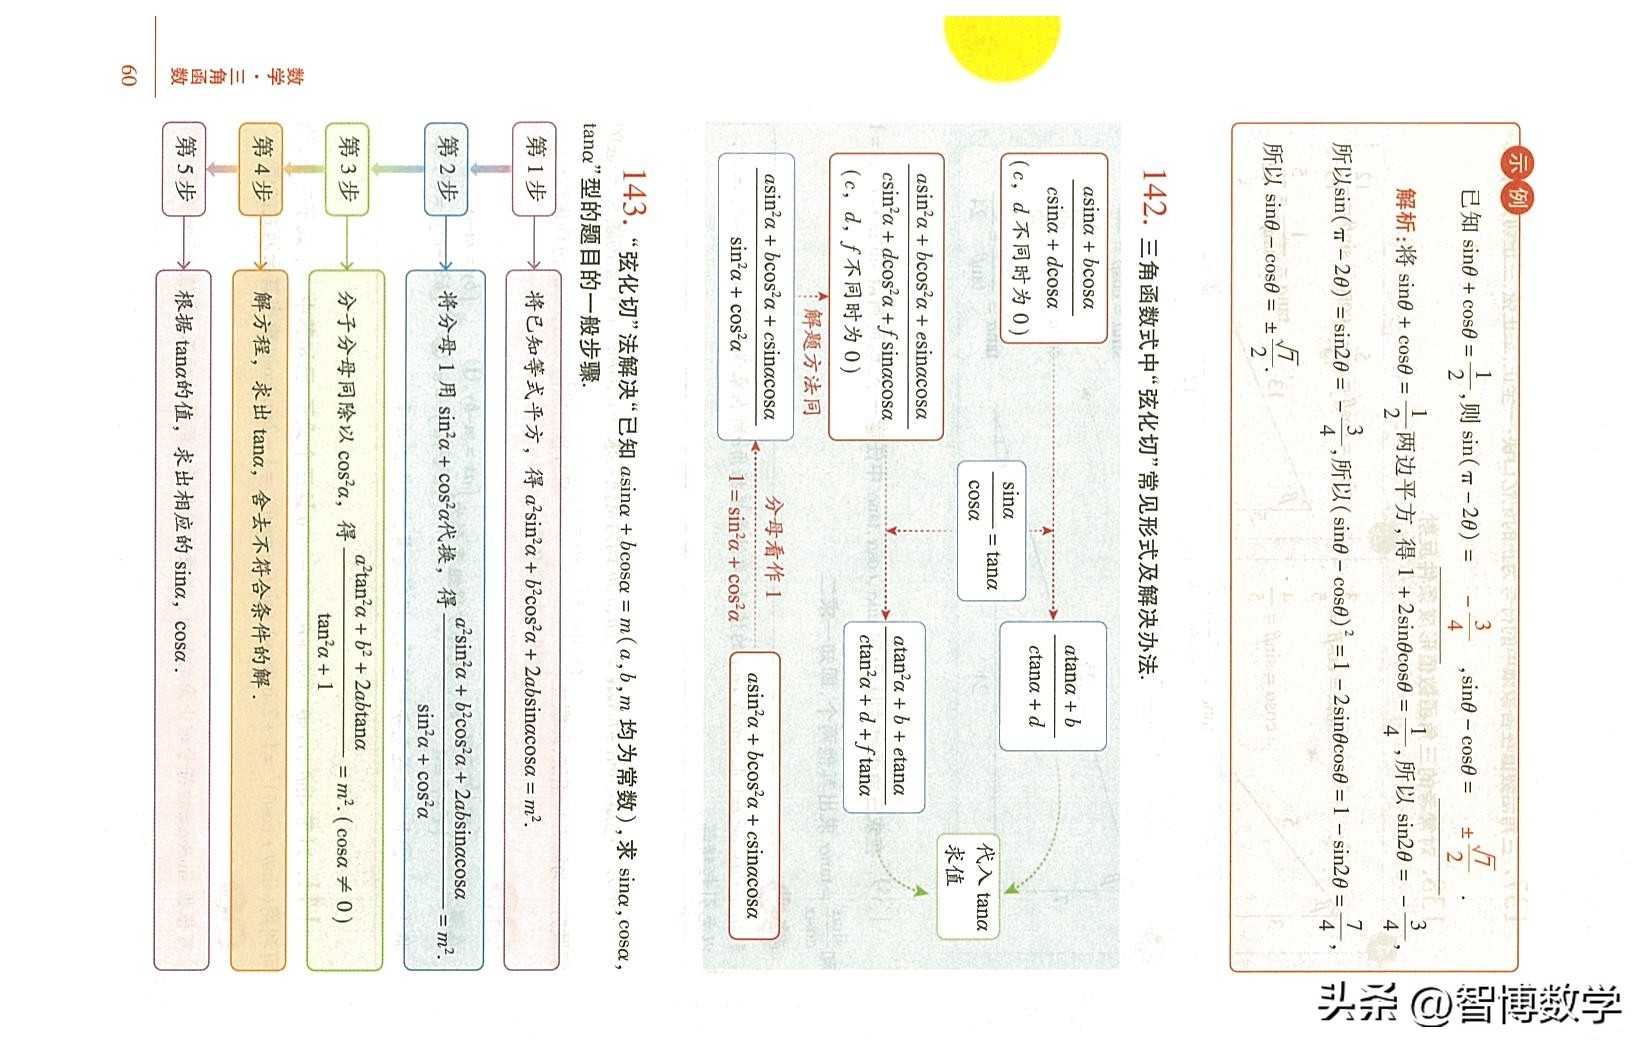 示例
已知 sinθ + cosθ = 1/2 ,则 sin(π - 2θ) = -3/4 ,sinθ - cosθ = ±√7/2 .
解析:将 sinθ + cosθ = 1/2 两边平方,得 1 + 2sinθcosθ = 1/4 ,所以 sin2θ = -3/4 ,
所以sin(π - 2θ) = sin2θ = -3/4 ,所以(sinθ - cosθ)² = 1 - 2sinθcosθ = 1 - sin2θ = 7/4 ,
所以 sinθ - cosθ = ±√7/2 .
142. 三角函数式中“弦化切”常见形式及解决办法.
(asinα + bcosα)/(csinα + dcosα)
(c, d 不同时为 0)
(atanα + b)/(ctanα + d)
sinα/cosα = tanα
代入 tanα
求值
(asin²α + bcos²α + esinαcosα)/(csin²α + dcos²α + fsinαcosα)
(c, d, f 不同时为 0)
(atan²α + b + etanα)/(ctan²α + d + ftanα)
解题方法同
(asin²α + bcos²α + csinαcosα)/(sin²α + cos²α)
分母看作 1
1 = sin²α + cos²α
asin²α + bcos²α + csinαcosα
143. “弦化切”法解决“已知 asinα + bcosα = m(a,b,m 均为常数),求 sinα,cosα,
tanα”型的题目的一般步骤.
第 1 步
将已知等式平方, 得 a²sin²α + b²cos²α + 2absinαcosα = m².
第 2 步
将分母 1 用 sin²α + cos²α代换, 得 (a²sin²α + b²cos²α + 2absinαcosα)/(sin²α + cos²α) = m².
第 3 步
分子分母同除以 cos²α, 得 (a²tan²α + b² + 2abtanα)/(tan²α + 1) = m².(cosα ≠ 0)
第 4 步
解方程, 求出 tanα, 舍去不符合条件的解.
第 5 步
根据 tanα的值, 求出相应的 sinα, cosα.
数学·三角函数
60
头条 @智博数学